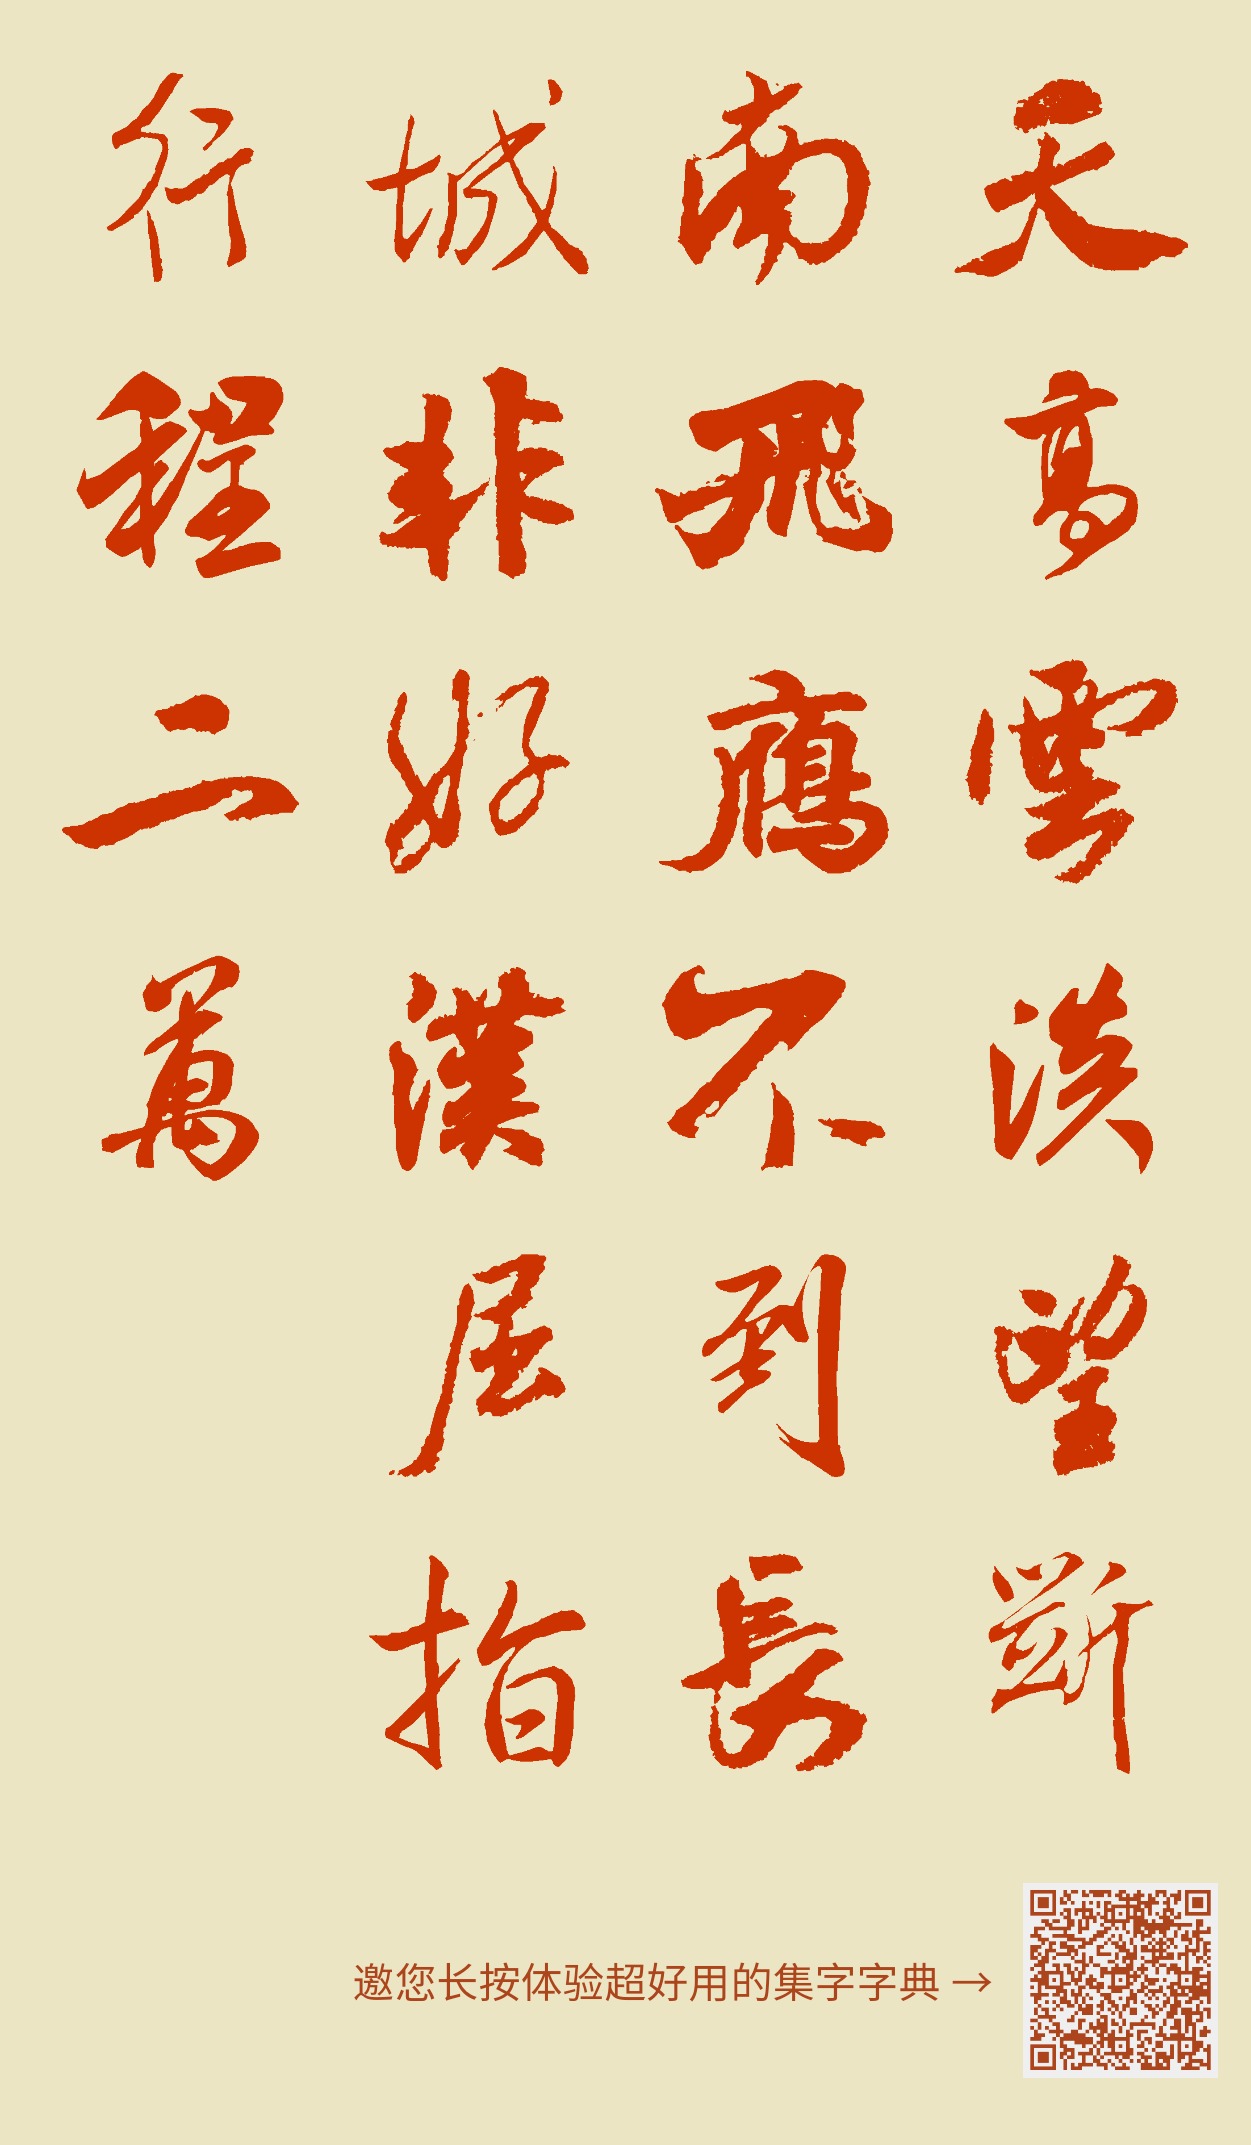 天高雲淡望斷
南飛鴈不到長
城非好漢屈指
行程二萬
邀您长按体验超好用的集字字典 →